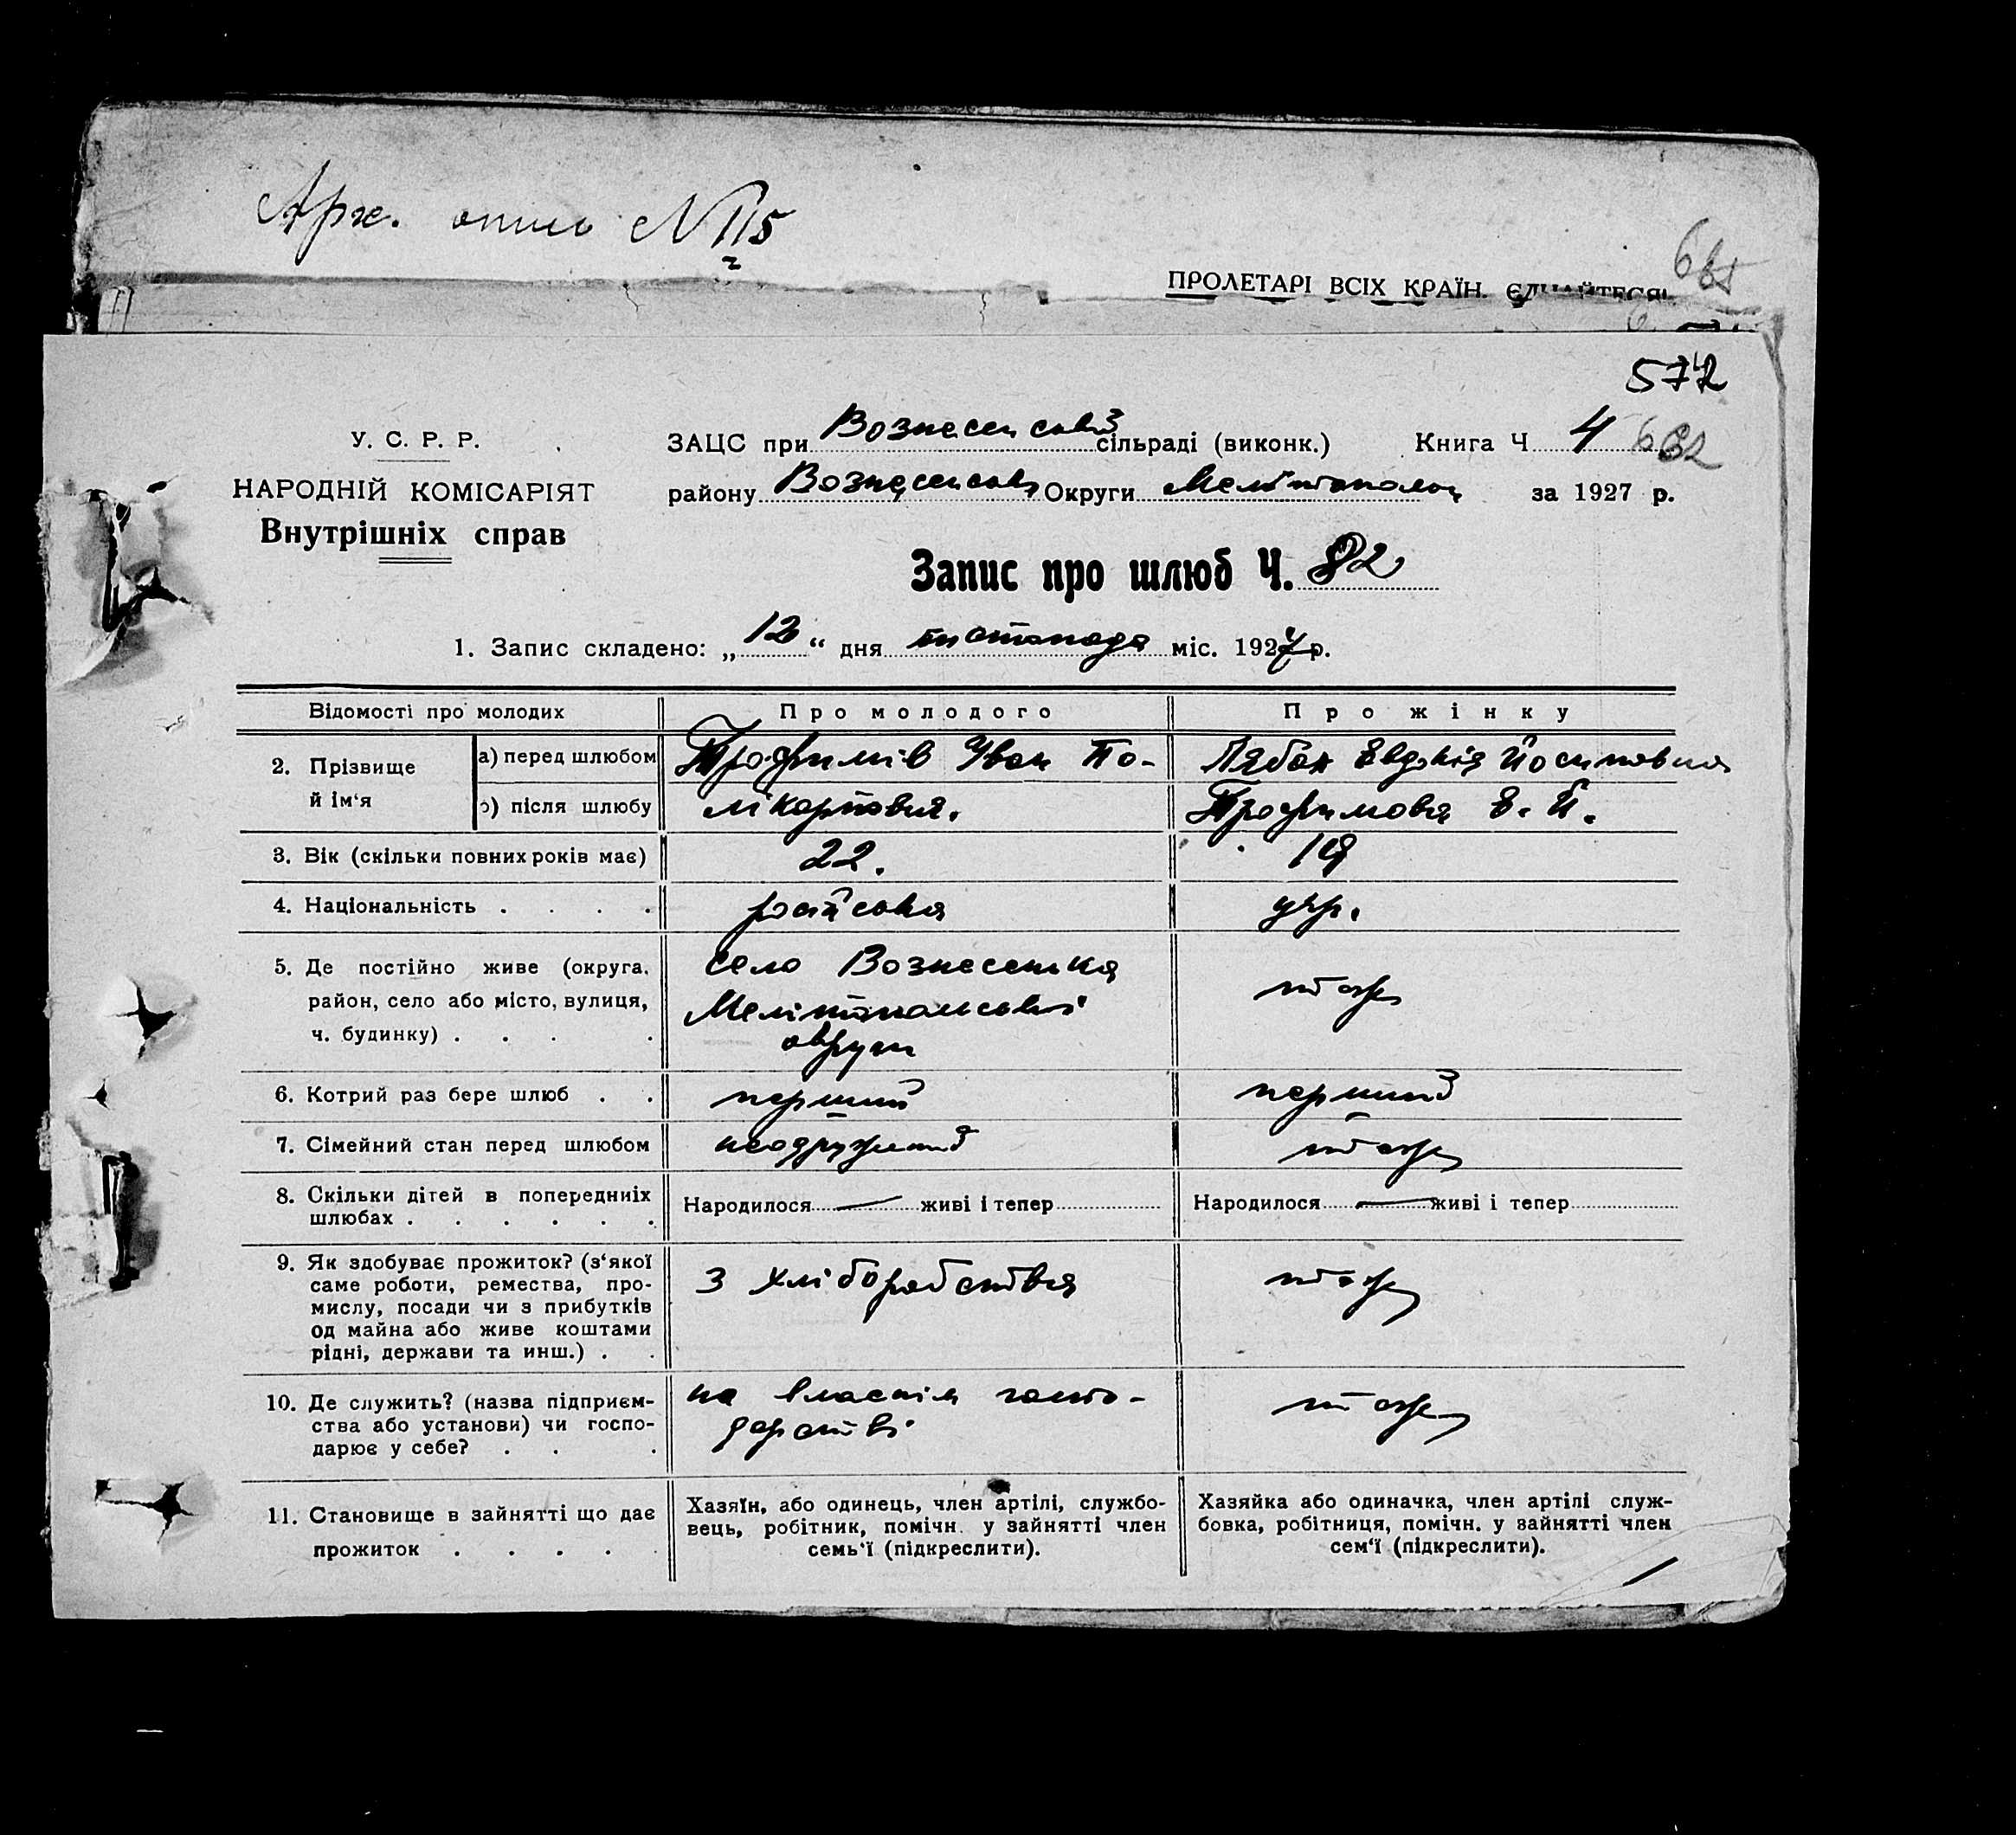 Арх. опись N 115
2
ПРОЛЕТАРІ ВСІХ КРАЇН, ЄДНАЙТЕСЯ!
572
У. С. Р. Р.
НАРОДНІЙ КОМІСАРІЯТ
Внутрішніх справ
ЗАЦС при Вознесенській сільраді (виконк.) Книга Ч 4 632
району Вознесенськ Округи Мелітопольськ за 1927 р.
Запис про шлюб Ч. 82
1. Запис складено: „12“ дня листопада міс. 1927 р.
Відомості про молодих Про молодого Про жінку
2. Прізвище й ім‘я
а) перед шлюбом Трофимів Іван По- Лябах Евдокія Йосиповна
б) після шлюбу лікарповия. Трофимова Е. Й.
3. Вік (скільки повних років має) 22. 19
4. Національність . . . . російська укр.
5. Де постійно живе (округа, село Вознесенка
район, село або місто, вулиця, Мелітопольської тож
ч. будинку) . . . . округи
6. Котрий раз бере шлюб . . перший перший
7. Сімейний стан перед шлюбом неодружений тож
8. Скільки дітей в попередниіх Народилося — живі і тепер Народилося — живі і тепер
шлюбах . . . . . .
9. Як здобуває прожиток? (з‘якої
саме роботи, ремества, про- з хліборобства тож
мислу, посади чи з прибутків
од майна або живе коштами
рідні, держави та инш.) . .
10. Де служить? (назва підприєм- на власнім госпо- тож
ства або установи) чи госпо- дарстві
дарює у себе? . . .
11. Становище в зайнятті що дає
прожиток . . . . .
Хазяїн, або одинець, член артілі, службо-
вець, робітник, помічн. у зайнятті член
семь‘ї (підкреслити).
Хазяйка або одиначка, член артілі служ-
бовка, робітниця, помічн. у зайнятті член
сем‘ї (підкреслити).